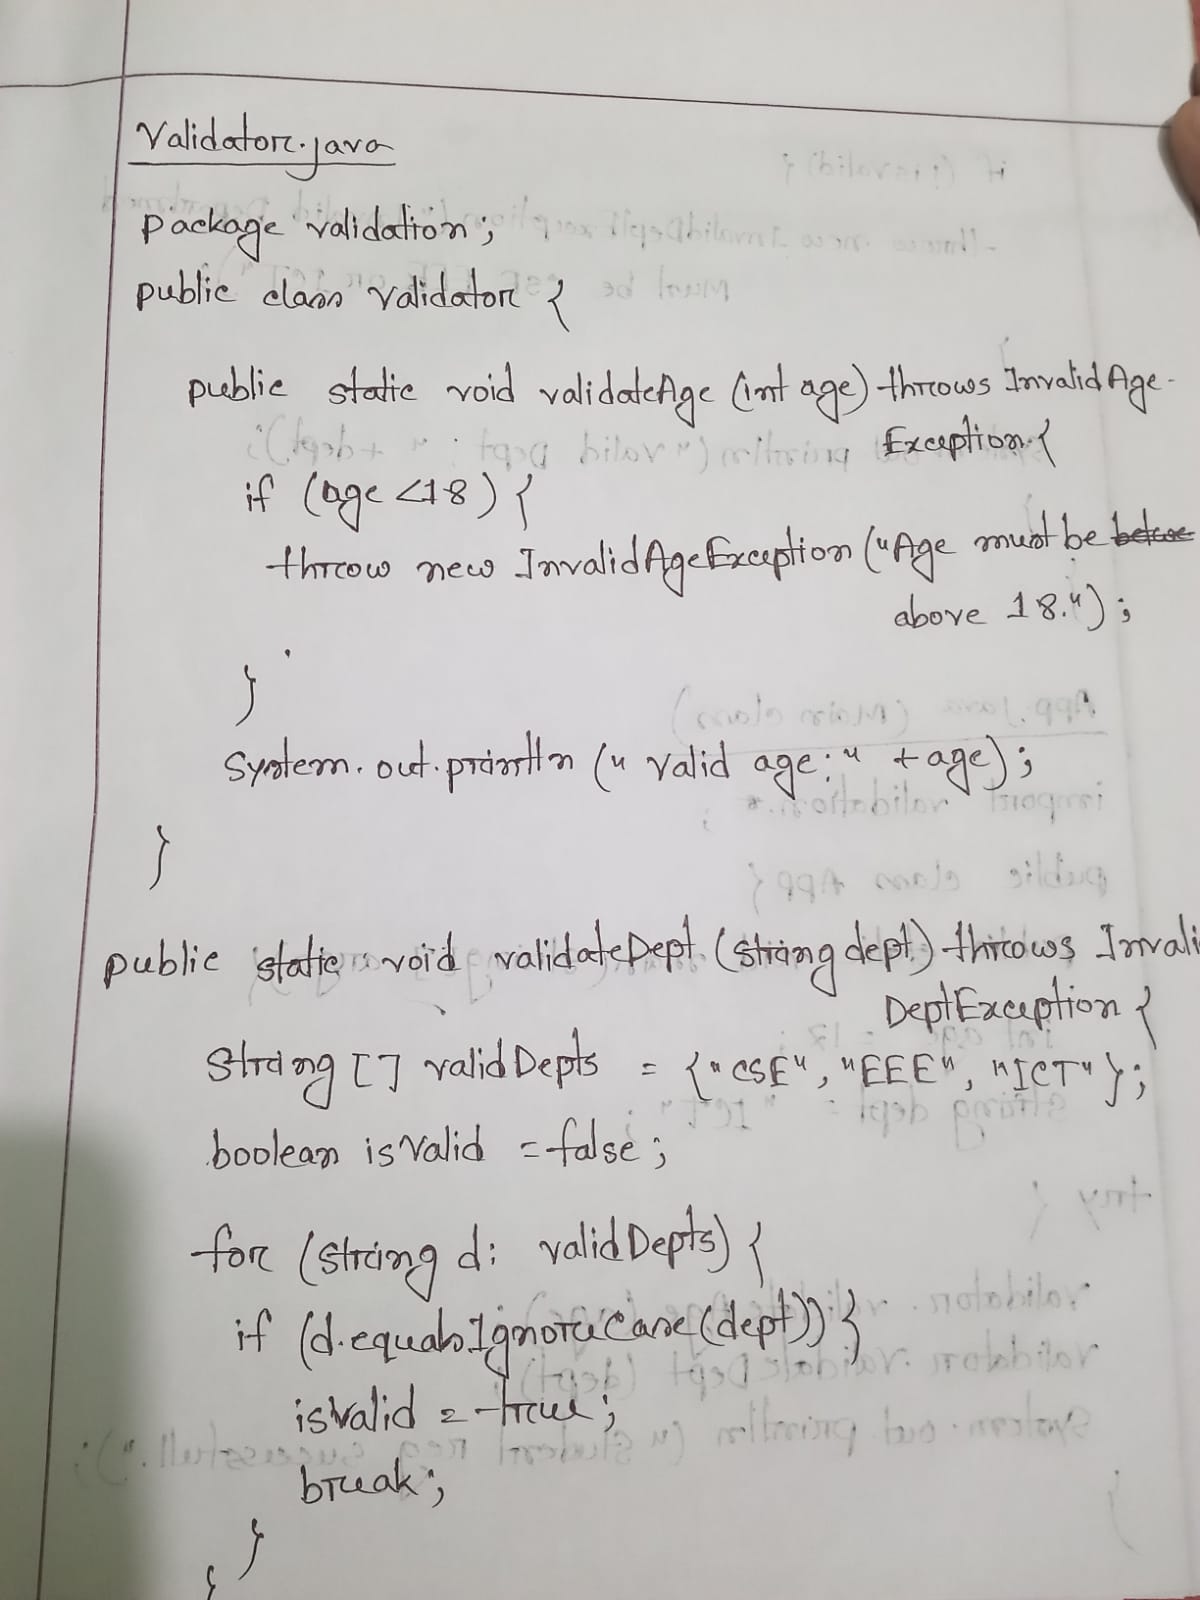 Validator.java
package validation;
public class Validator {
public static void validateAge (int age) throws InvalidAge-
Exception {
if (age <18) {
throw new InvalidAgeException ("Age must be
above 18.");
}
System.out.println (" Valid age: " + age);
}
public static void validateDept (String dept) throws Invali
DeptException {
String [] validDepts = {"CSE", "EEE", "ICT"};
boolean isValid = false;
for (String d: validDepts) {
if (d.equalsIgnoreCase(dept)) {
isValid = true;
break;
}
}